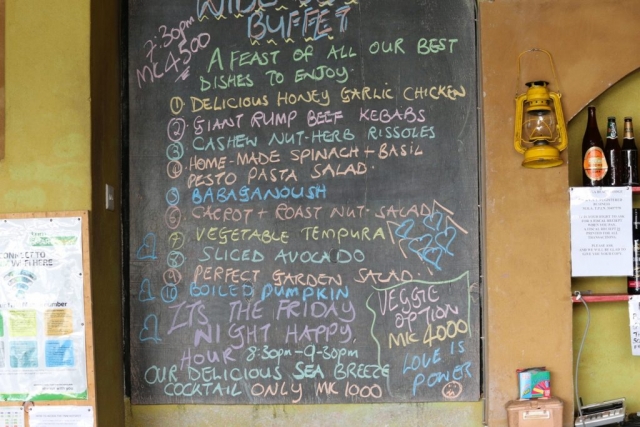 BUFFET
7:30pm
MK 4500
A FEAST OF ALL OUR BEST
DISHES TO ENJOY:
① DELICIOUS HONEY GARLIC CHICKEN
② GIANT RUMP BEEF KEBABS
③ CASHEW NUT-HERB RISSOLES
④ HOME-MADE SPINACH + BASIL
PESTO PASTA SALAD.
⑤ BABAGANOUSH
⑥ CARROT + ROAST NUT SALAD
⑦ VEGETABLE TEMPURA
⑧ SLICED AVOCADO
⑨ PERFECT GARDEN SALAD.
⑩ BOILED PUMPKIN
ITS THE FRIDAY
NIGHT HAPPY
HOUR 8:30pm-9:30pm
OUR DELICIOUS SEA BREEZE
COCKTAIL ONLY MK 1000
VEGGIE
OPTION
MK 4000
LOVE IS
POWER
CONNECT TO
WIFI HERE